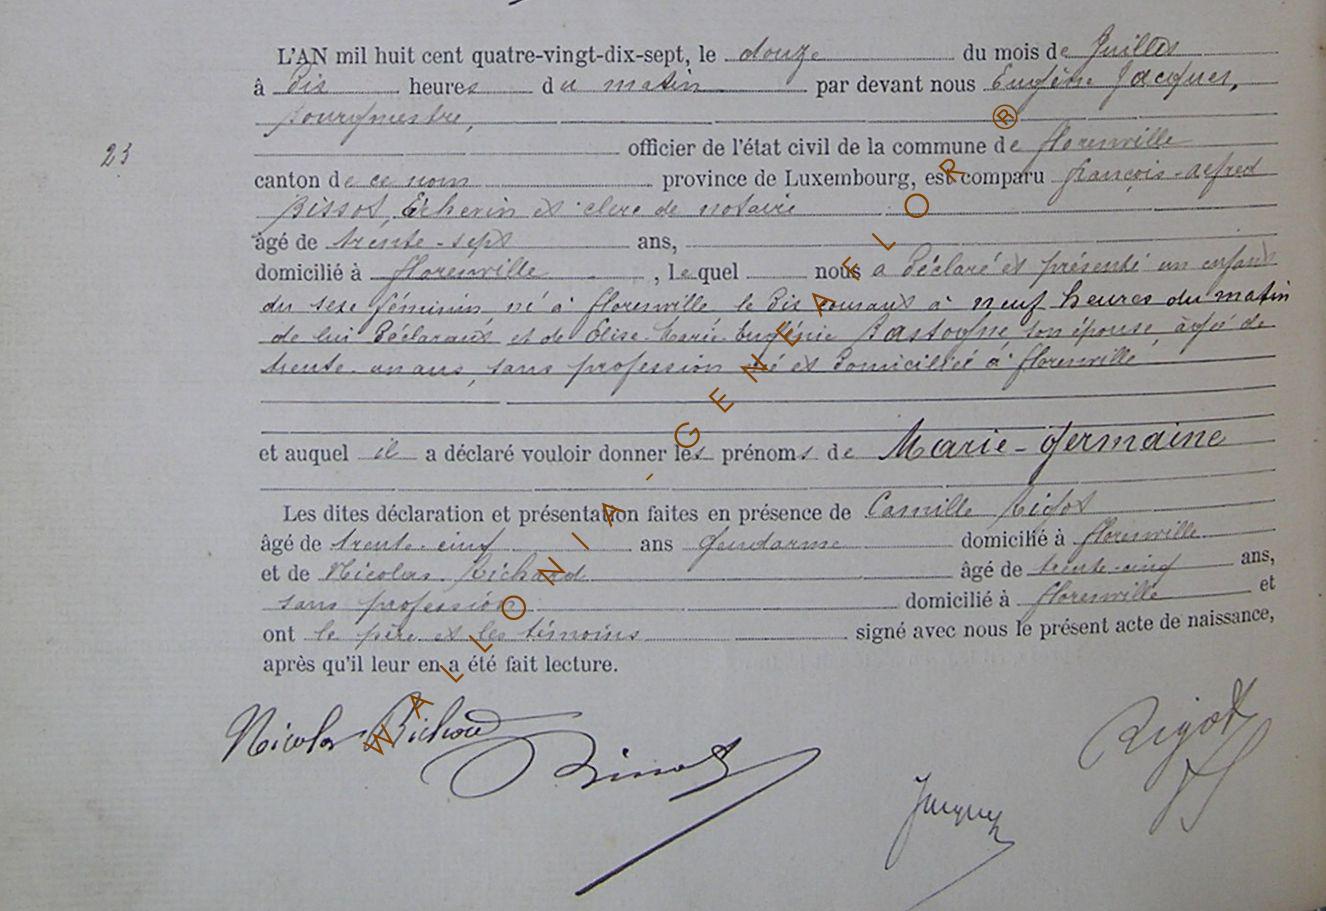 L'AN mil huit cent quatre-vingt-dix-sept, le douze du mois de Juillet
à dix heures du matin par devant nous Eugène Jacques,
bourgmestre,
officier de l'état civil de la commune de florenville
23
canton de ce nom province de Luxembourg, est comparu françois-alfred
Bissot, Echevin et clerc de notaire
âgé de trente-sept ans,
domicilié à florenville, lequel nous a déclaré et présenté un enfant
du sexe féminin, né à florenville le dix courant à neuf heures du matin
de lui déclarant et de Elise-Marie-Eugénie Bastogne, son épouse, âgée de
trente-un ans, sans profession né et domiciliée à florenville
et auquel il a déclaré vouloir donner les prénoms de Marie-Germaine
Les dites déclaration et présentation faites en présence de Camille Rigot
âgé de trente-cinq ans Gendarme domicilié à florenville
et de Nicolas Richard âgé de trente-cinq ans,
sans profession domicilié à florenville et
ont le père et les témoins signé avec nous le présent acte de naissance,
après qu'il leur en a été fait lecture.
Nicolas Richard
Rigot
WALLONIA-GENEAFLOR®